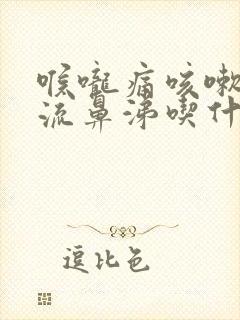 喉嚨痛咳嗽
流鼻涕喫什
逗比色